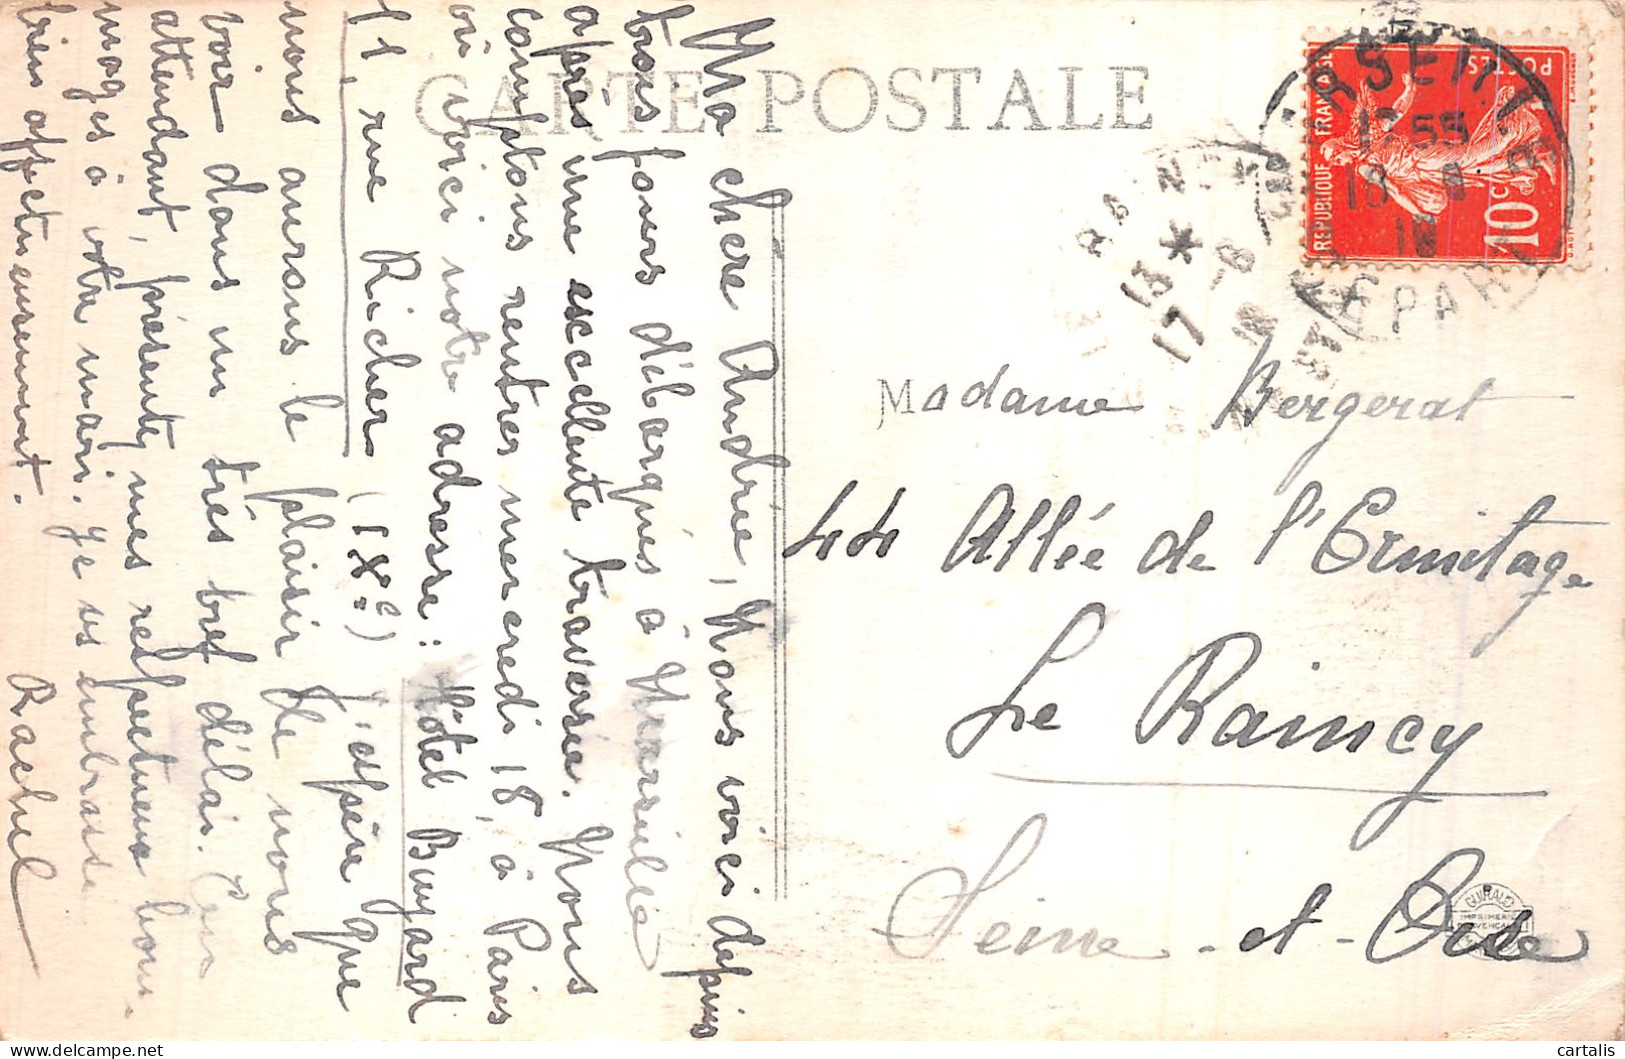 CARTE POSTALE
Ma chère Andrée, Nous voici depuis
trois jours débarqués à Marseille
après une excellente traversée. Nous
comptons rentrer mercredi 18, à Paris
où voici notre adresse : Hôtel Bayard
11, rue Richer (IXe) J'espère que
nous aurons le plaisir de nous
voir dans un très bref délai. En
attendant, présentez mes respectueux hom-
mages à votre mari. Je vs embrasse
bien affectueusement.
Rachel
REPUBLIQUE FRANÇAISE
POSTES
10c
13 55
18
DEPART
13 *
17 -8
Madame Bergerat
44 Allée de l'Ermitage
Le Raincy
Seine-et-Oise
GUIRAUD
IMPRIMERIE
PROVENÇALE
cartalis